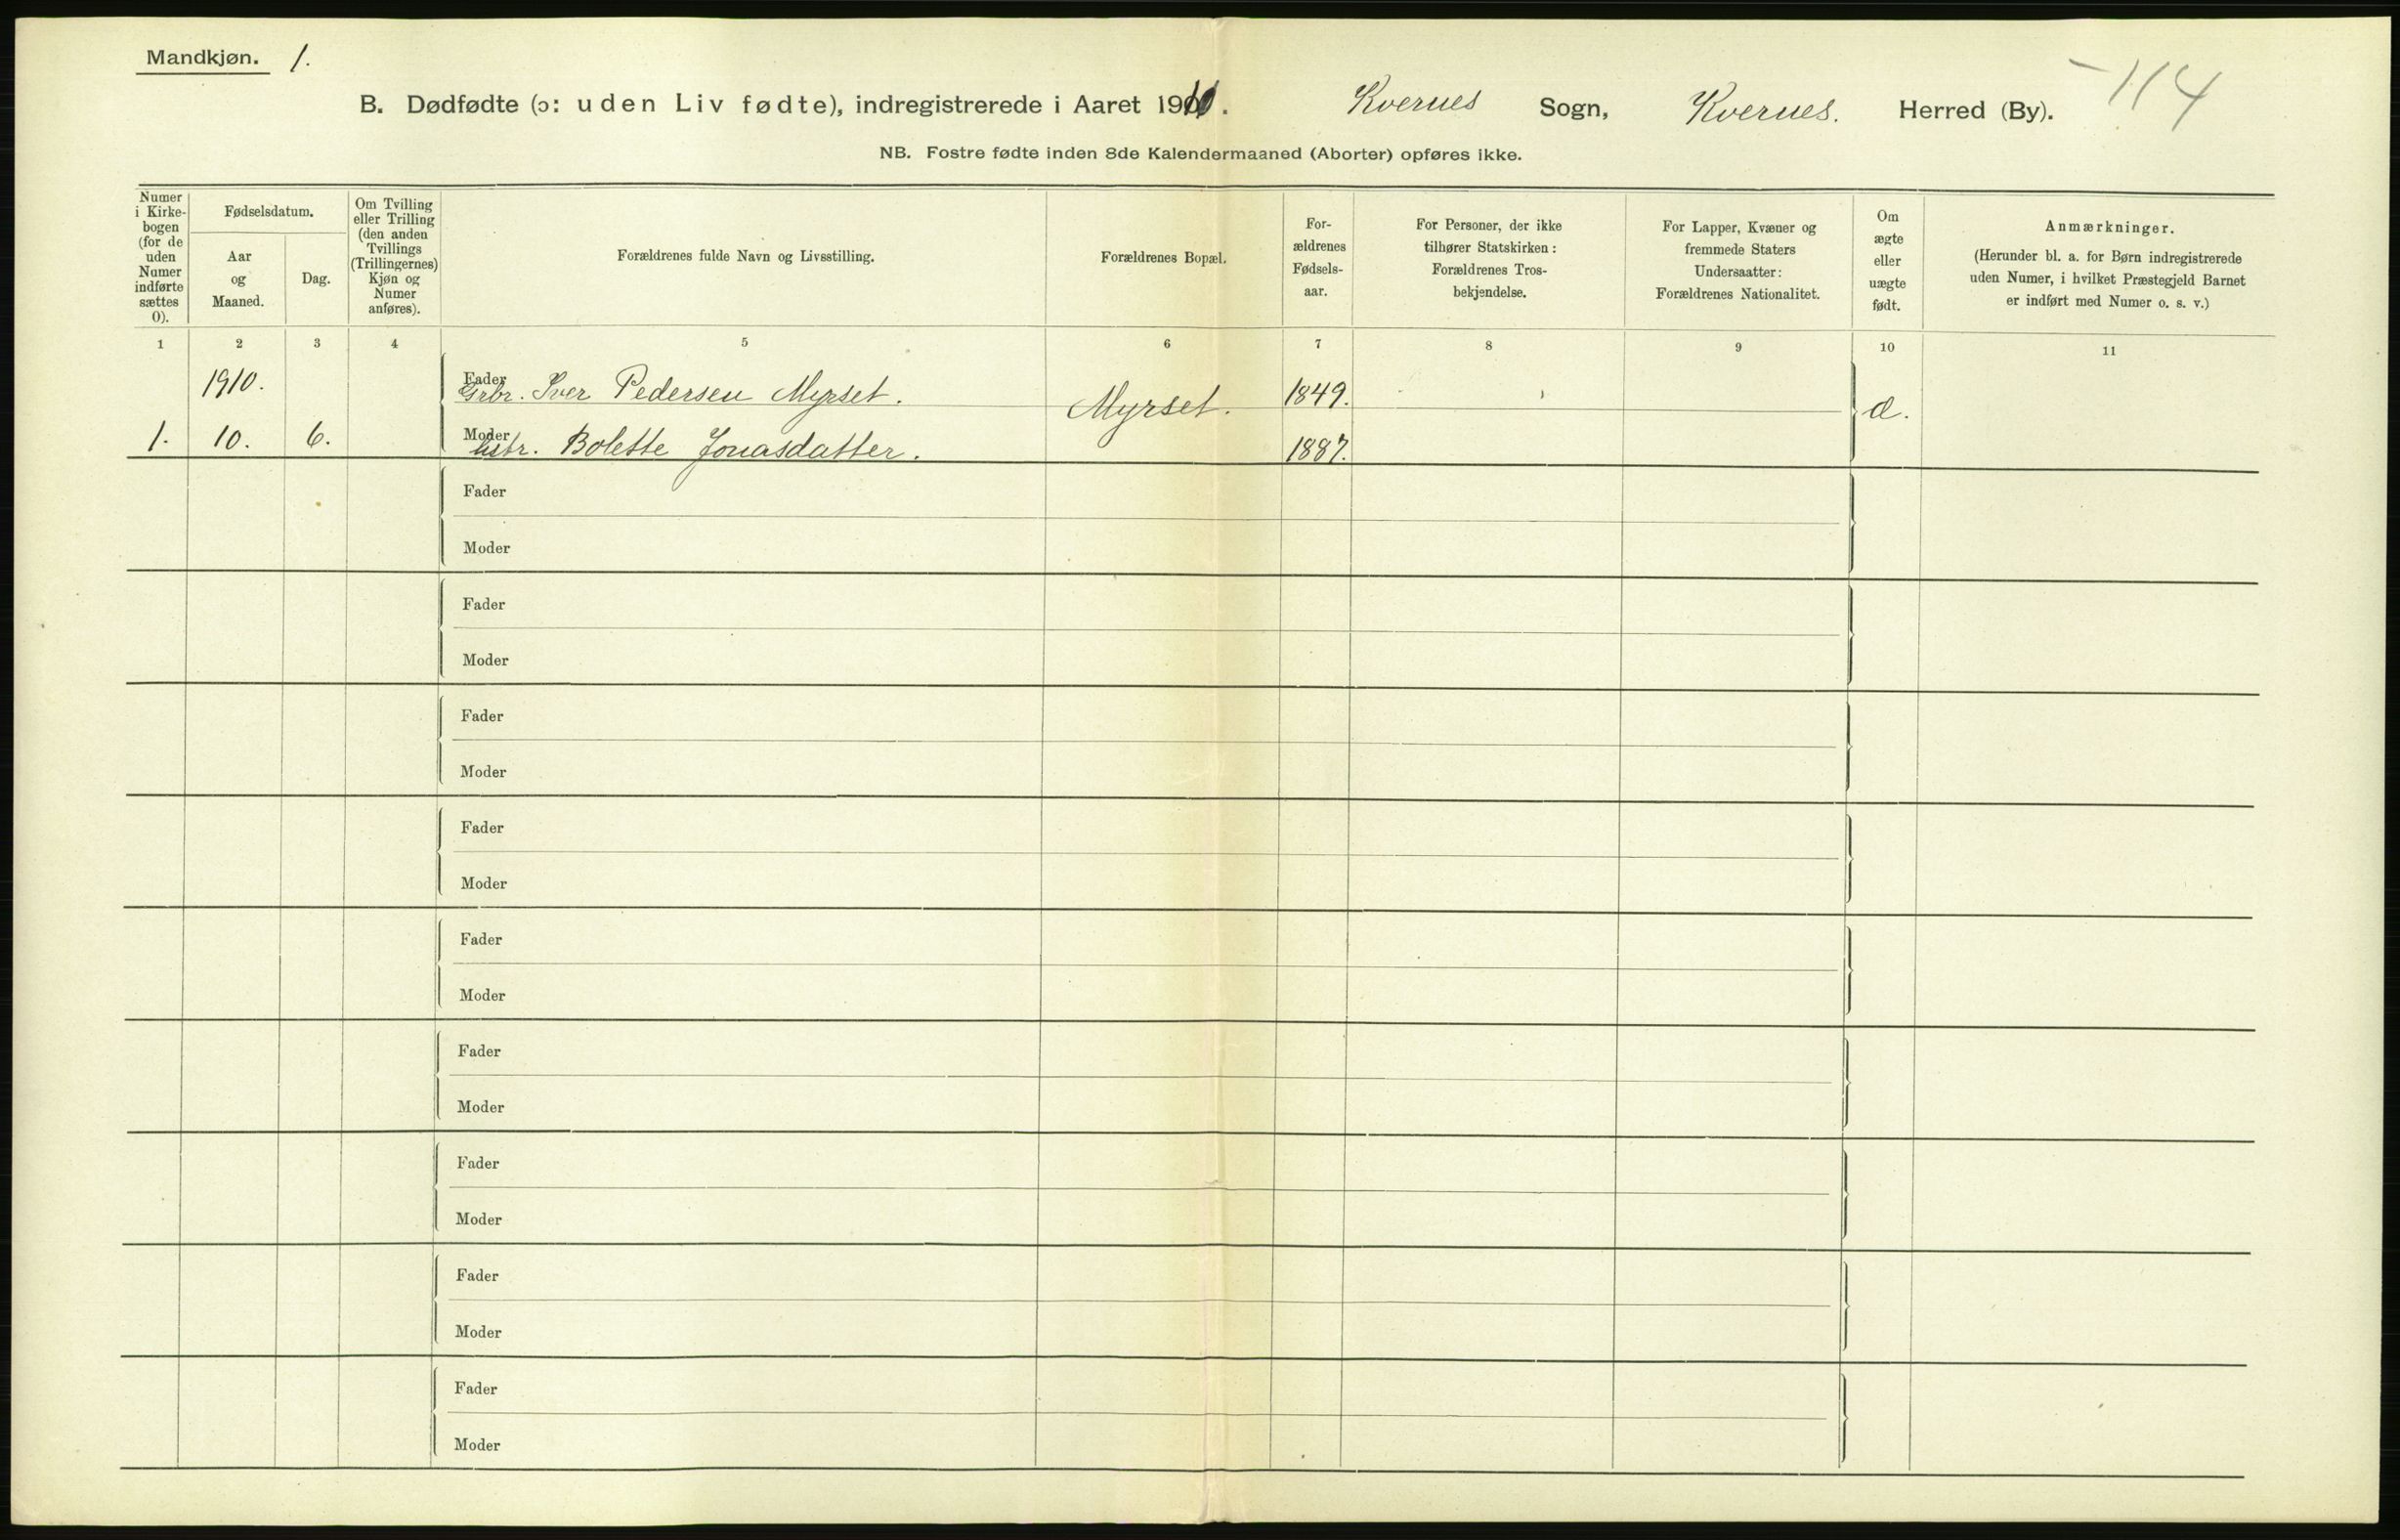 Mandkjøn. 1.
114
B. Dødfødte (ɔ: uden Liv fødte), indregistrerede i Aaret 1910. Kvernes Sogn, Kvernes. Herred (By).
NB. Fostre fødte inden 8de Kalendermaaned (Aborter) opføres ikke.
Numer
i Kirke-
bogen
(for de
uden
Numer
indførte
sættes
0).
Fødselsdatum.
Aar
og
Maaned.
Dag.
Om Tvilling
eller Trilling
(den anden
Tvillings
(Trillingernes)
Kjøn og
Numer
anføres).
Forældrenes fulde Navn og Livsstilling.
Forældrenes Bopæl.
For-
ældrenes
Fødsels-
aar.
For Personer, der ikke
tilhører Statskirken:
Forældrenes Tros-
bekjendelse.
For Lapper, Kvæner og
fremmede Staters
Undersaatter:
Forældrenes Nationalitet.
Om
ægte
eller
uægte
født.
Anmærkninger.
(Herunder bl. a. for Børn indregistrerede
uden Numer, i hvilket Præstegjeld Barnet
er indført med Numer o. s. v.)
1 2 3 4 5 6 7 8 9 10 11
1910. Fader Iver Pedersen Myrset. Myrset. 1849. æ.
1. 10. 6. Moder hstr. Bolette Jonasdatter. 1887.
Fader
Moder
Fader
Moder
Fader
Moder
Fader
Moder
Fader
Moder
Fader
Moder
Fader
Moder
Fader
Moder
Fader
Moder